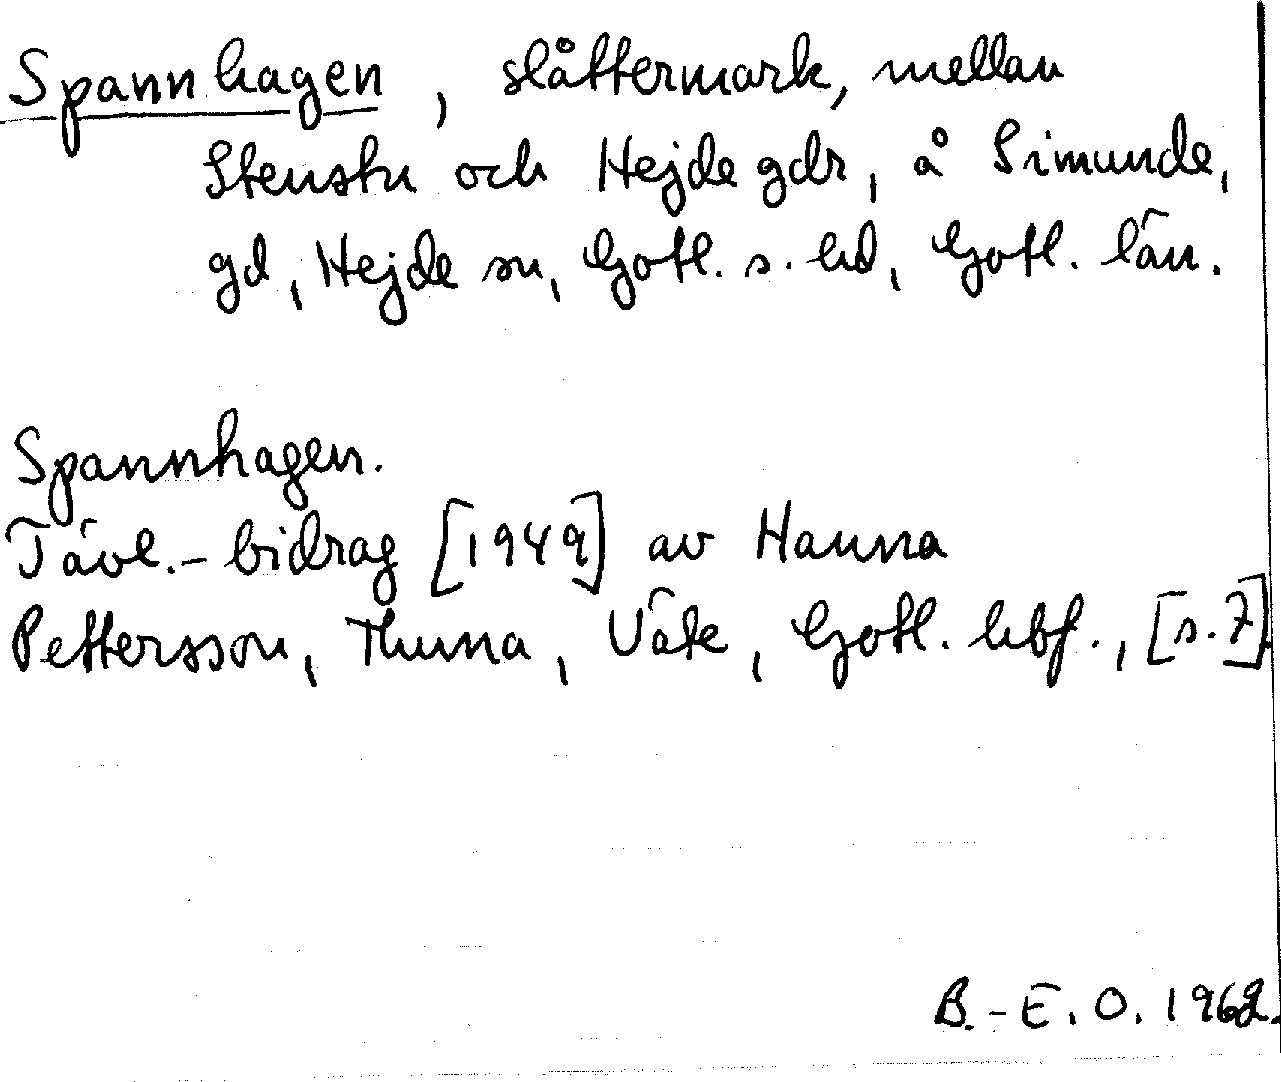 Spannhagen, slåttermark, mellan
Stenstu och Hejde gdr, å Simunde,
gd, Hejde sn, Gotl. s. hd, Gotl. län.
Spannhagen.
Tävl.-bidrag [1949] av Hanna
Pettersson, Thuna, Väte, Gotl. hbf., [s. 7].
B.-E. O. 1962.